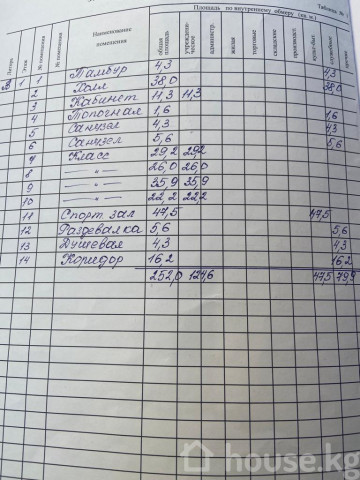 Таблица №
Площадь по внутреннему обмеру (кв. м.)
Литера
Этаж
№ помещения
№ помещения
Наименование помещения
общая площадь
учрежденческое
администр.
жилая
торговые
складские
производст.
культ-быт
служебные
прочие
В 1 1 Тамбур 4,3 4,3
2 Холл 38,0 38,0
3 Кабинет 11,3 11,3
4 Топочная 1,6 1,6
5 Санузел 4,3 4,3
6 Санузел 5,6 5,6
7 Класс 29,2 29,2
8 —"— 26,0 26,0
9 —"— 35,9 35,9
10 —"— 22,2 22,2
11 Спорт зал 47,5 47,5
12 Раздевалка 5,6 5,6
13 Душевая 4,3 4,3
14 Коридор 16,2 16,2
252,0 124,6 47,5 79,9
house.kg